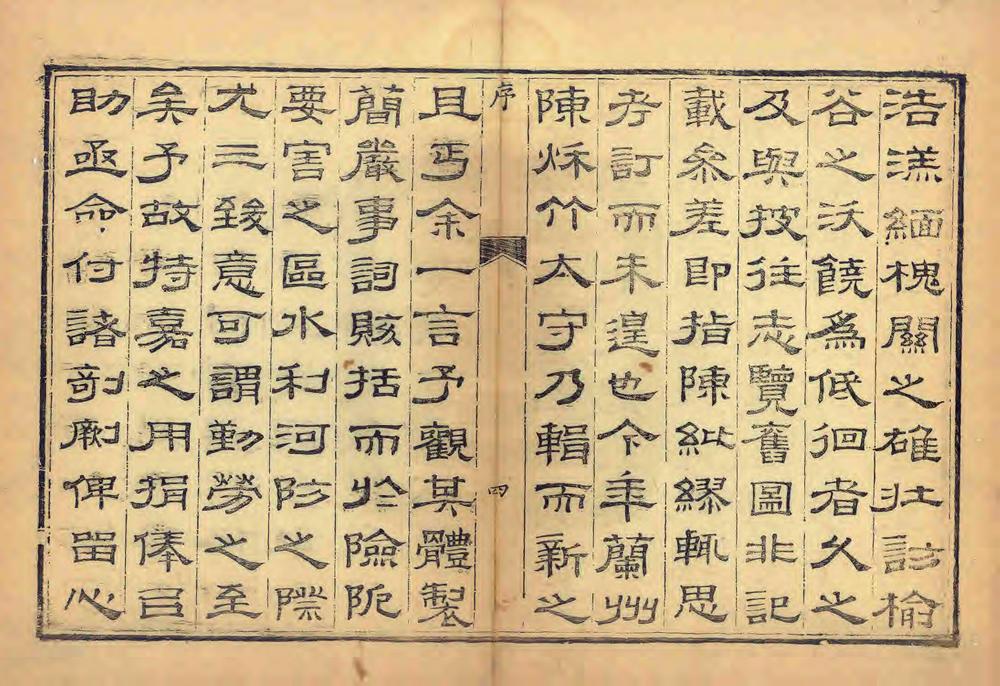 浩漾緬槐關之雄壯訪榆
谷之沃饒爲低徊者久之
及與披往志覽舊圖非記
載參差即指陳紕繆輒思
考訂而未遑也今年蘭州
陳秌竹太守乃輯而新之
序
四
且丐余一言予觀其體製
簡嚴事詞賅括而於險阨
要害之區水利河防之際
尤三致意可謂勤勞之至
矣予故特嘉之用捐俸㠯
助亟命付諸剞劂俾畱心